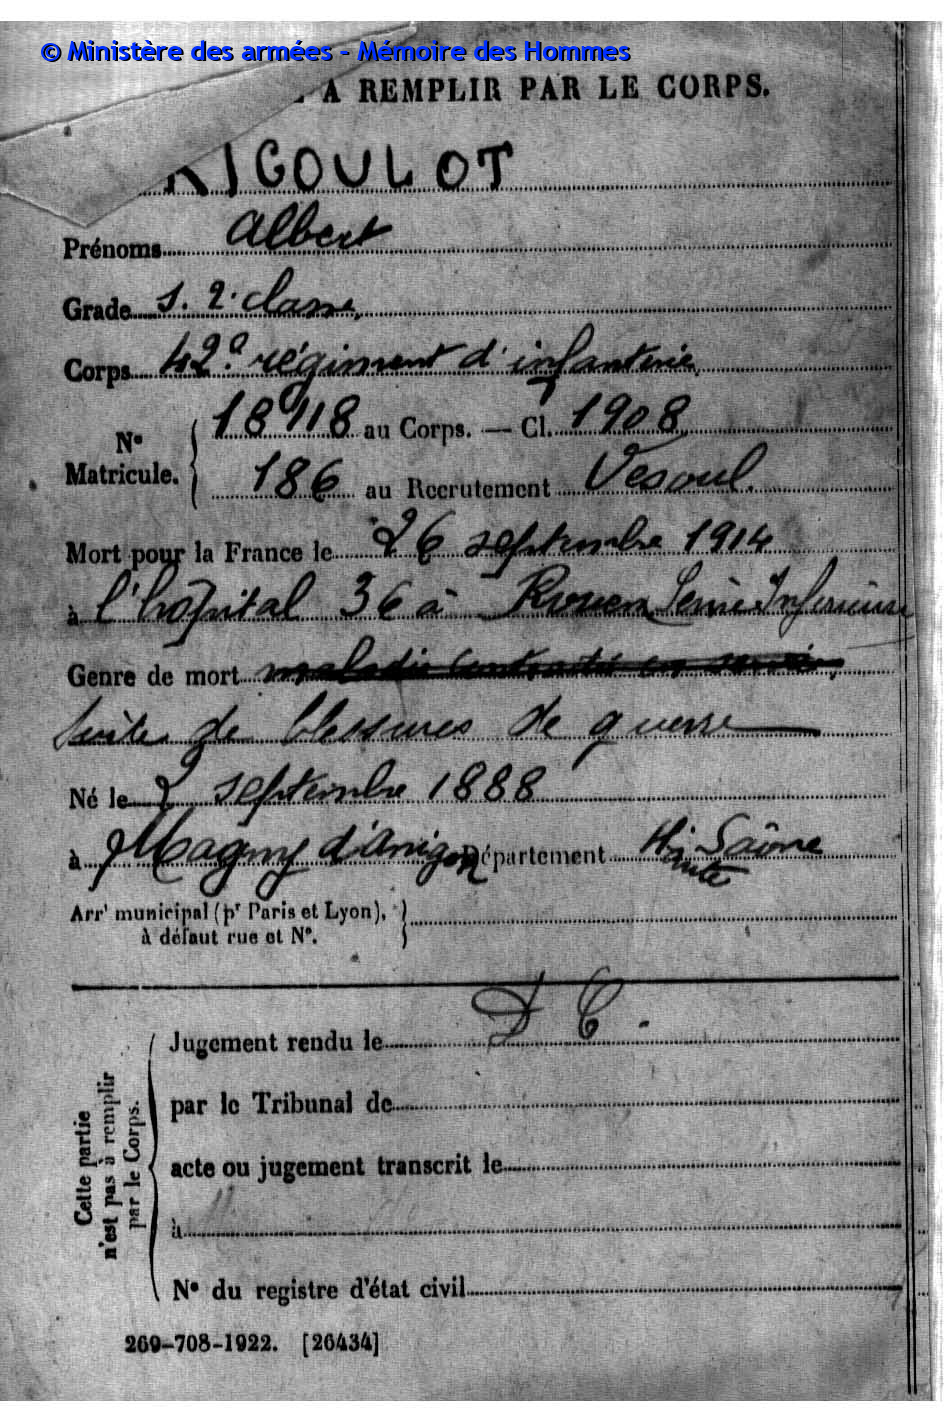 © Ministère des armées - Mémoire des Hommes
A REMPLIR PAR LE CORPS.
RIGOULOT
Prénoms Albert
Grade s. 2e classe
Corps 42e régiment d'infanterie
N° Matricule. 18118 au Corps. — Cl. 1908
186 au Recrutement Vesoul.
Mort pour la France le 26 septembre 1914
à l'hopital 36 à Rouen Seine Inferieure
Genre de mort maladie contractée en service,
Suites de blessures de guerre
Né le 2 septembre 1888
à Magny d'Anigon Département Haute Saône
Arrt municipal (pr Paris et Lyon),
à défaut rue et N°.
D C.
Jugement rendu le
par le Tribunal de
acte ou jugement transcrit le
à
N° du registre d'état civil
Cette partie
n'est pas à remplir
par le Corps.
269-708-1922. [26434]